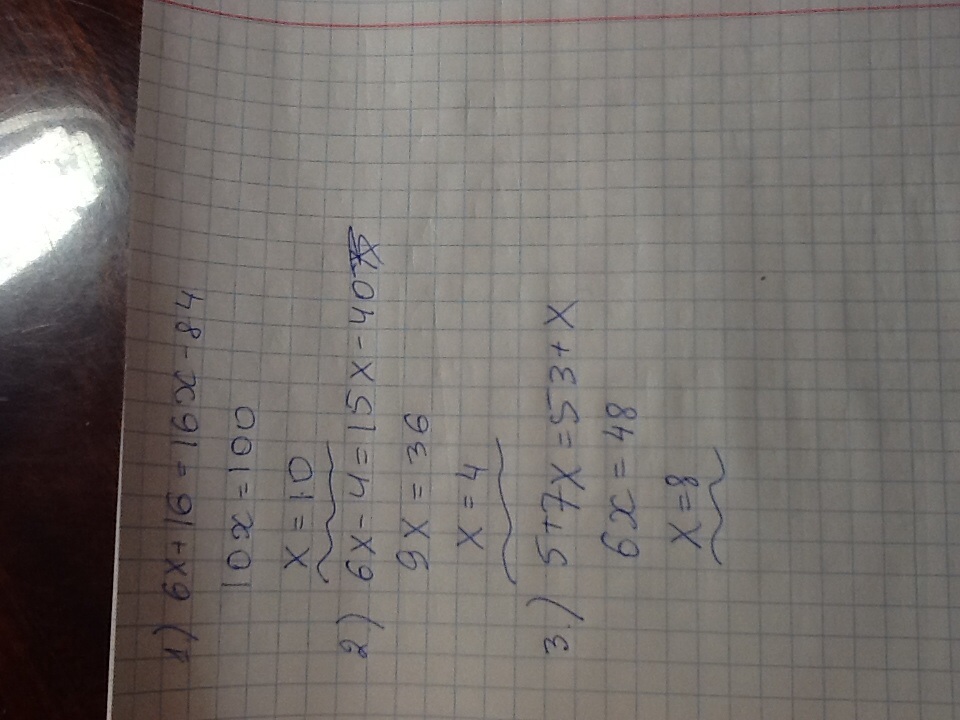 1) 6x+16=16x-84
10x=100
x=10
2) 6x-4=15x-40
9x=36
x=4
3.) 5+7x=53+x
6x=48
x=8